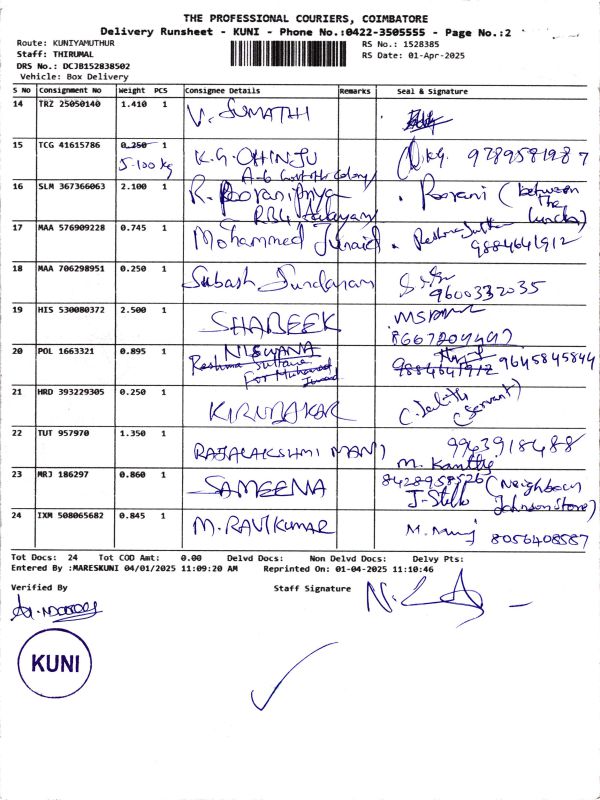 THE PROFESSIONAL COURIERS, COIMBATORE
Delivery Runsheet - KUNI - Phone No.:0422-3505555 - Page No.:2
Route: KUNIYAMUTHUR RS No.: 1528385
Staff: THIRUMAL RS Date: 01-Apr-2025
DRS No.: DCJB152838502
Vehicle: Box Delivery
S No Consignment No Weight PCS Consignee Details Remarks Seal & Signature
14 TRZ 25050140 1.410 1 V. SUMATHI
15 TCG 41615786 0.250 1 K.G. OHINJU K.G. 9789581987
5.100 kg A-6 Colony
16 SLM 367366063 2.100 1 R. Pooranipriya Poorani (between
RB4 The
17 MAA 576909228 0.745 1 Mohammed Junaid Reshma 9884641912
18 MAA 706298951 0.250 1 Subash Sundaram 9600332035
19 HIS 530080372 2.500 1 SHABEEK
20 POL 1663321 0.895 1 NISWANA 9884641912 9645845844
Reshma Sultana
For Muhamad Junaid
21 HRD 393229305 0.250 1 KIRUBAKAR (Servant)
22 TUT 957970 1.350 1 RAJALAKSHMI MANI 9963918488
M. Kanthi
23 MRJ 186297 0.860 1 SAMEENA 8428958526 (Neighbour
J-Stella Johnson Store)
24 IXM 508065682 0.845 1 M. RAVIKUMAR 8056408587
Tot Docs: 24 Tot COD Amt: 0.00 Delvd Docs: Non Delvd Docs: Delvy Pts:
Entered By :MARESKUNI 04/01/2025 11:09:20 AM Reprinted On: 01-04-2025 11:10:46
Verified By Staff Signature
KUNI